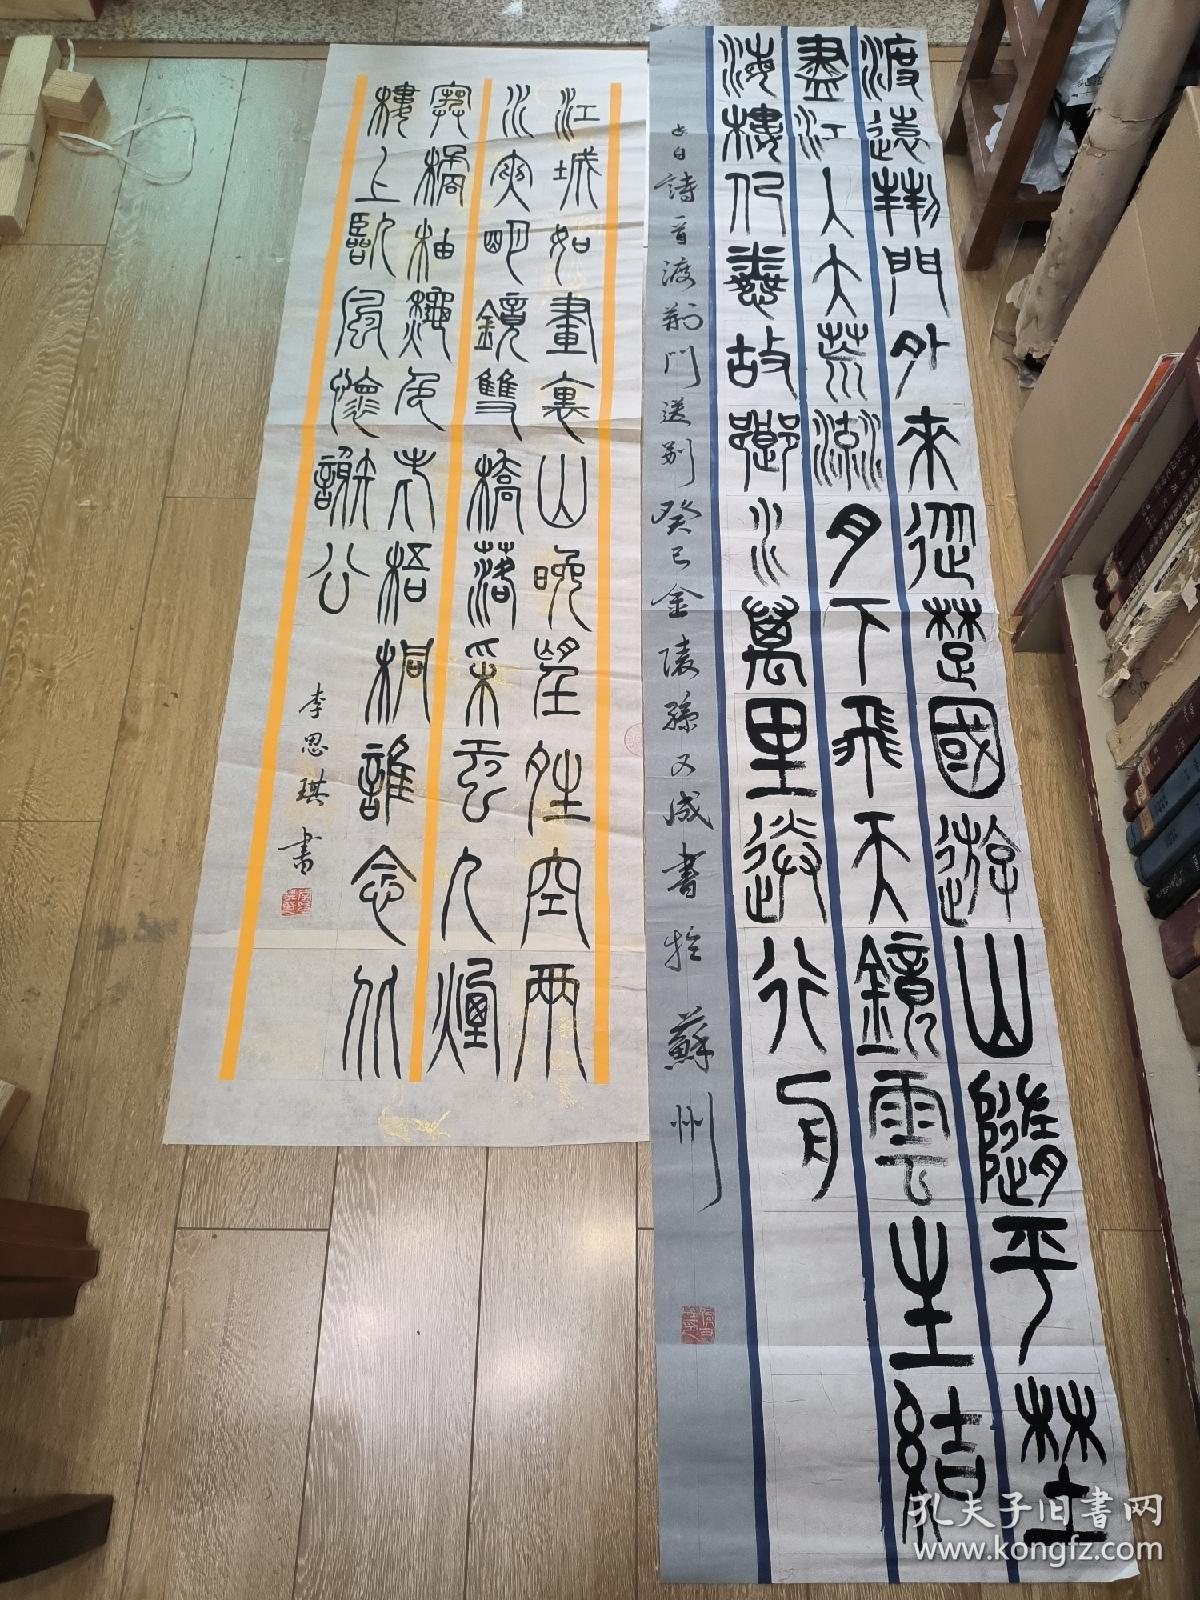 渡遠荊門外來從楚國遊山隨平埜
盡江入大荒流月下飛天鏡雲生結
海樓仍憐故鄉水萬里送行舟
白詩一首渡荊門送别癸巳金陵孫又成書於蘇州
江城如畫裏山晚望晴空兩
水夾明鏡雙橋落采虹人煙
寒橘柚秋色老梧桐誰念北
樓上臨風懷謝公
李思琪書
孔夫子旧書网
www.kongfz.com